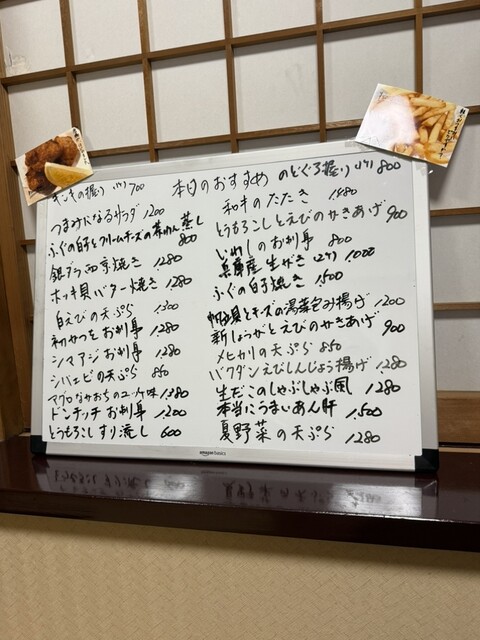 本日のおすすめ
の握り 700
つまみになるサラダ 1200
ふぐの白子とクリームチーズの茶わん蒸し 800
銀ダラ西京焼き 1280
ホッキ貝バター焼き 1280
白えびの天ぷら 1300
初かつをお刺身 1280
シマアジお刺身 1280
シバエビの天ぷら 850
マグロなかおちのユッケ味 1380
ドンチッチお刺身 1200
とうもろこしすり流し 600
のどぐろ握り 800
和牛のたたき 1480
とうもろこしとえびのかきあげ 900
いわしのお刺身 800
兵庫産生がき 1000
ふぐの白子焼き 1,500
貝とチーズの湯葉包み揚げ 1200
新しょうがとえびのかきあげ 900
メヒカリの天ぷら 850
バクダンえびしんじょう揚げ 1,280
生だこのしゃぶしゃぶ風 1280
本当にうまいあん肝 1,500
夏野菜の天ぷら 1280
amazon basics